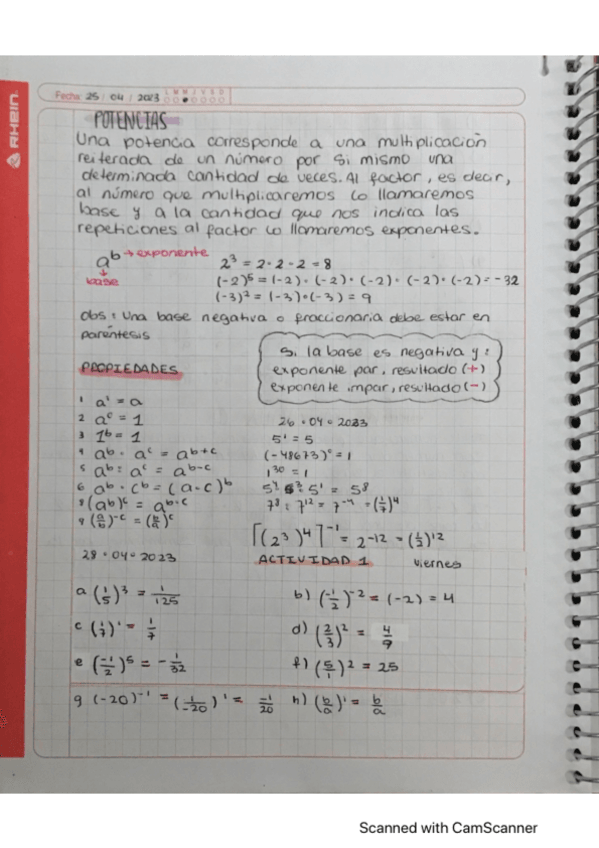 RHEIN
Fecha: 25 / 04 / 2023 L M M J V S D
POTENCIAS
Una potencia corresponde a una multiplicación
reiterada de un número por si mismo una
determinada cantidad de veces. Al factor, es decir,
al número que multiplicaremos lo llamaremos
base y a la cantidad que nos indica las
repeticiones al factor lo llamaremos exponentes.
a^b → exponente
base
2³ = 2 · 2 · 2 = 8
(-2)⁵ = (-2) · (-2) · (-2) · (-2) · (-2) = -32
(-3)² = (-3) · (-3) = 9
obs: Una base negativa o fraccionaria debe estar en
paréntesis
Si la base es negativa y:
exponente par, resultado (+)
exponente impar, resultado (-)
PROPIEDADES
1 a¹ = a
2 a⁰ = 1
3 1^b = 1
4 a^b · a^c = a^(b+c)
5 a^b : a^c = a^(b-c)
6 a^b · c^b = (a·c)^b
8 (a^b)^c = a^(b·c)
9 (a/b)^-c = (b/a)^c
26 · 04 · 2023
5¹ = 5
(-48673)⁰ = 1
1³⁰ = 1
5¹ = 5⁸
7⁸ : 7¹² = 7⁻⁴ = (1/7)⁴
[(2³)⁴]⁻¹ = 2⁻¹² = (1/2)¹²
28 · 04 · 2023
ACTIVIDAD 1 viernes
a (1/5)³ = 1/125
b) (-1/2)⁻² = (-2) = 4
c (1/7)¹ = 1/7
d) (2/3)² = 4/9
e (-1/2)⁵ = -1/32
f) (5/1)² = 25
g (-20)⁻¹ = (1/-20)¹ = -1/20
h) (b/a)¹ = b/a
Scanned with CamScanner